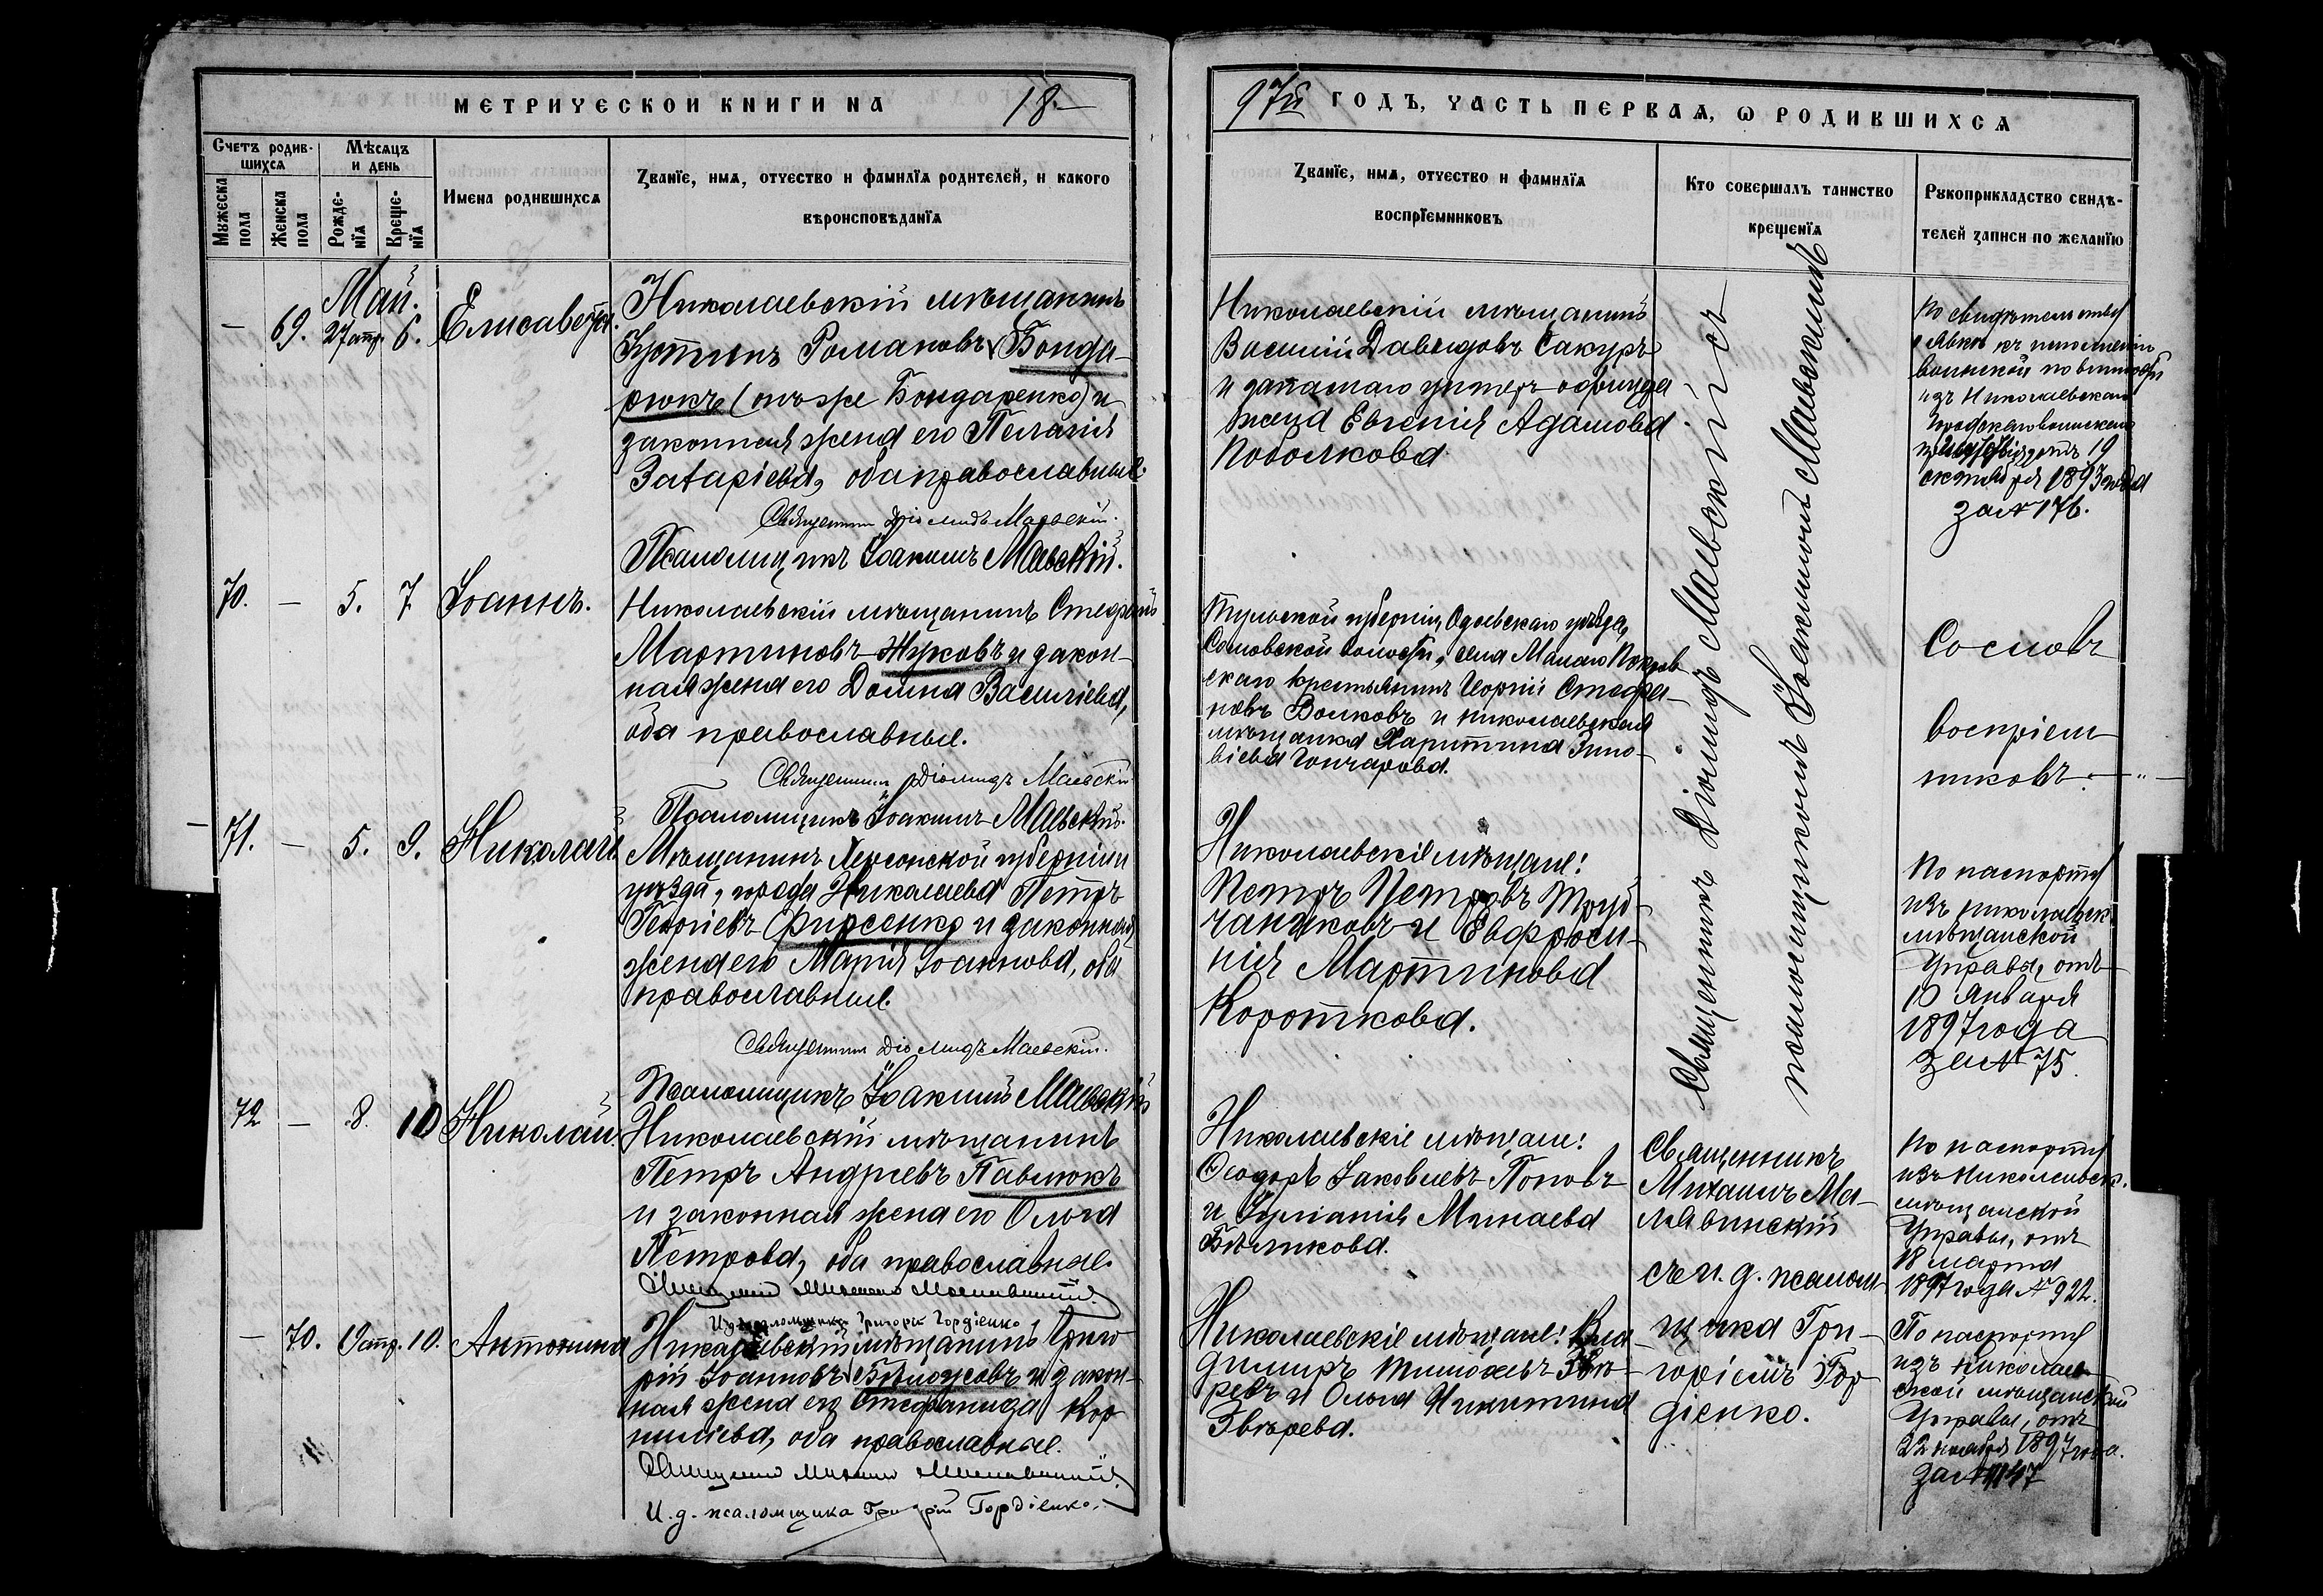 МЕТРИЧЕСКОЙ КНИГИ НА 18
97й ГОДЪ, ЧАСТЬ ПЕРВАЯ, Ѡ РОДИВШИХСЯ
Счетъ родив-
шихся
Мѣсяцъ
и день
Мужеска
пола
Женска
пола
Рожде-
нїя
Креще-
нїя
Имена родившихся
Званїе, имя, отчество и фамилїя родителей, и какого
вѣроисповѣданїя
Званїе, имя, отчество и фамилїя
воспрїемниковъ
Кто совершалъ таинство
крещенїя
Рукоприкладство свидѣ-
телей записи по желанїю
Май.
— 69. 27 апр. 6. Елисавета.
Николаевскій мѣщанинъ
Іустинъ Романовъ Бонда-
рюкъ (онъ же Бондаренко) и
законная жена его Пелагія
Захаріева, оба православные.
Священникъ Діомидъ Маевскій.
Псаломщикъ Іоакимъ Маевскій.
Николаевскій мѣщанинъ
Василій Давидовъ Сакуръ
и запаснаго унтеръ-офицера
жена Евгенія Адамова
Поволкова.
По свидѣтельству
о явкѣ къ исполненію
воинской повинности
изъ Николаевскаго
Городского воинскаго
отъ 19
октября 1893 года
за № 176.
70. — 5. 7. Іоаннъ.
Николаевскій мѣщанинъ Стефанъ
Мартиновъ Жуковъ и закон-
ная жена его Домна Василіева,
оба православные.
Священникъ Діомидъ Маевскій
Псаломщикъ Іоакимъ Маевскій.
Тульской губерніи, Одоевскаго уѣзда,
Сомовской волости, села Малаго Покров-
скаго крестьянинъ Георгій Стефа-
новъ Волковъ и николаевская
мѣщанка Харитина Зино-
віева Гончарова.
Со словъ
воспріем-
никовъ.
71. — 5. 9. Николай
Мѣщанинъ Херсонской губерніи и
уѣзда, города Николаева Петръ
Георгіевъ Фирсенко и законная
жена его Марія Іоаннова, оба
православные.
Священникъ Діомидъ Маевскій.
Псаломщикъ Іоакимъ Маевскій
Николаевскіе мѣщане:
Петръ Петровъ Труб-
чаниковъ и Евфроси-
нія Мартинова
Короткова.
Священникъ Діомидъ Маевскій съ
псаломщикомъ Іоакимомъ Маевскимъ
По паспорту
изъ николаевск.
мѣщанской
Управы, отъ
10 Января
1897 года
за № 75.
72 — 8. 10 Николай.
Николаевскій мѣщанинъ
Петръ Андреевъ Павлюкъ
и законная жена его Ольга
Петрова, оба православные.
И.д. псаломщика Григорій Гордіенко
Николаевскіе мѣщане:
Ѳеодоръ Іаковлевъ Поповъ
и Іуліанія Минаева
Бѣликова.
Священникъ
Михаилъ Ма-
лявинскій
съ и. д. псалом-
щика Гри-
горіемъ Гор-
діенко.
По паспорту
изъ Николаевск.
мѣщанской
Управы, отъ
18 марта
1897 года № 922.
— 70. 19 апр. 10. Антонина
Николаевскій мѣщанинъ Григо-
рій Іоанновъ Бѣлоусовъ и закон-
ная жена его Стефанида Кор-
ниліева, оба православные.
И. д. псаломщика Григорій Гордіенко.
Николаевскіе мѣщане: Вла-
димиръ Тимоѳеевъ Звѣ-
ревъ и Ольга Никитина
Звѣрева.
По паспорту
изъ Николаев-
ской мѣщанской
Управы, отъ
1897 года.